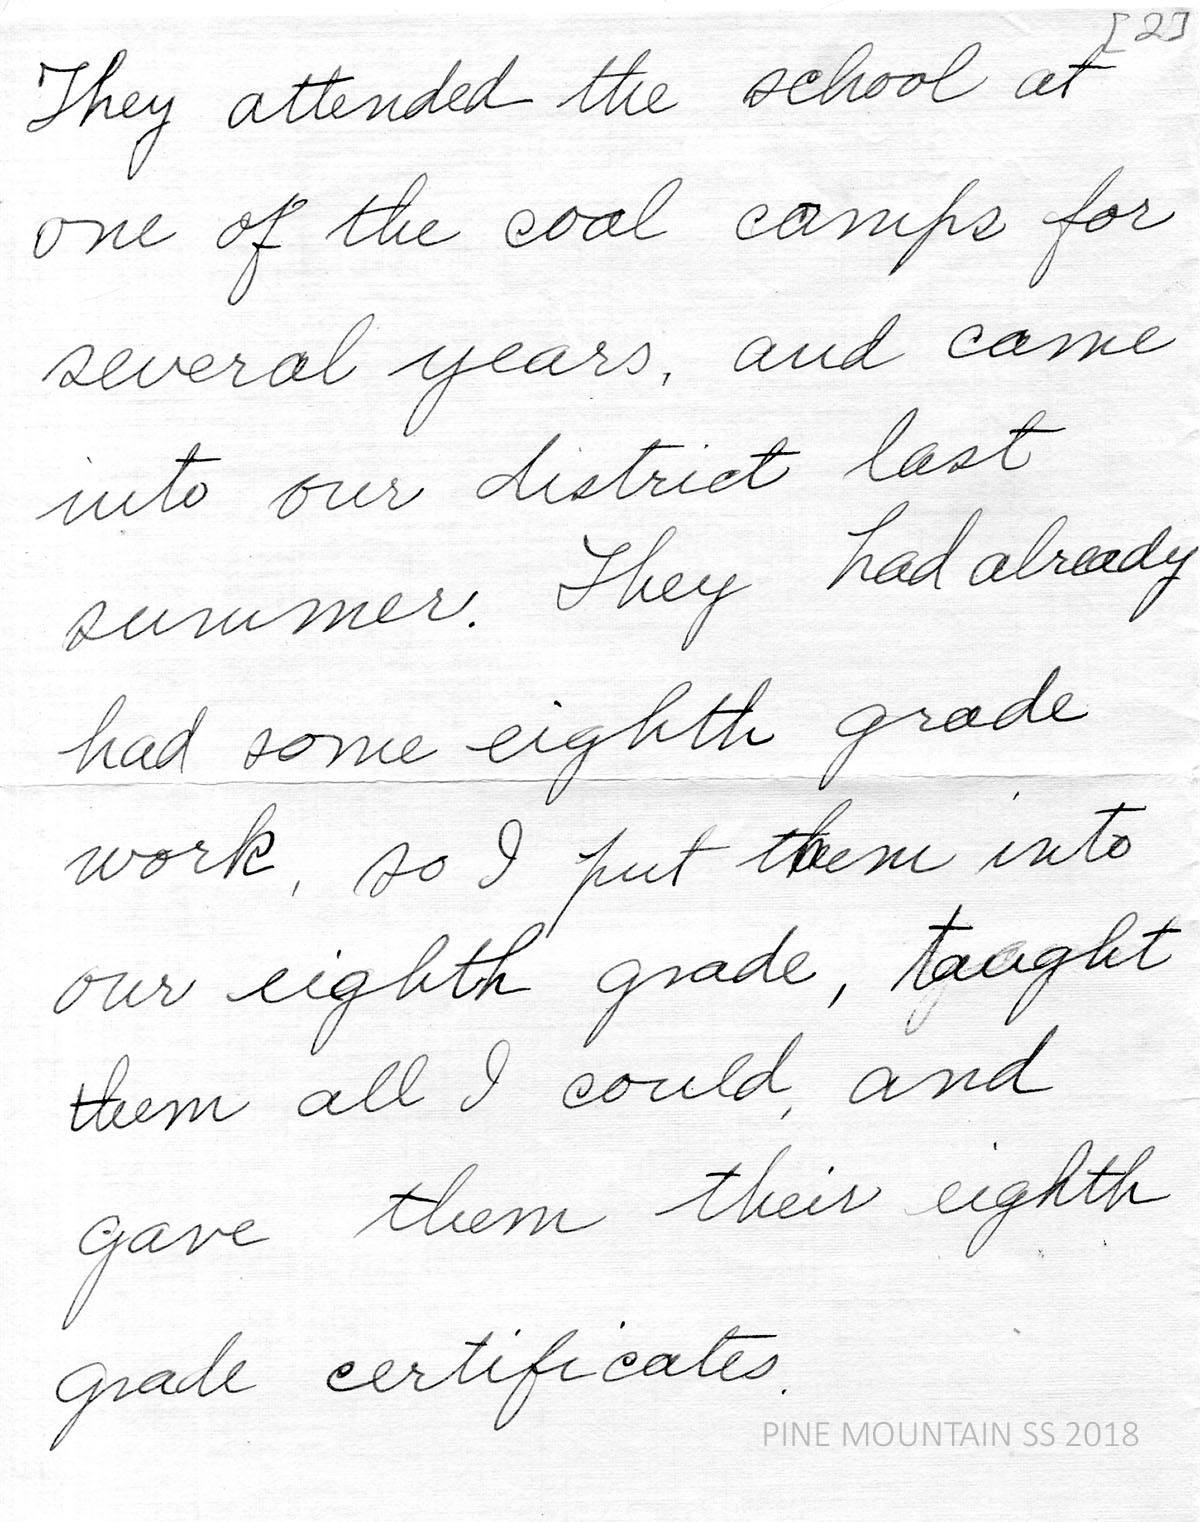 [2]
They attended the school at
one of the coal camps for
several years, and came
into our district last
summer. They had already
had some eighth grade
work, so I put them into
our eighth grade, taught
them all I could, and
gave them their eighth
grade certificates.
PINE MOUNTAIN SS 2018